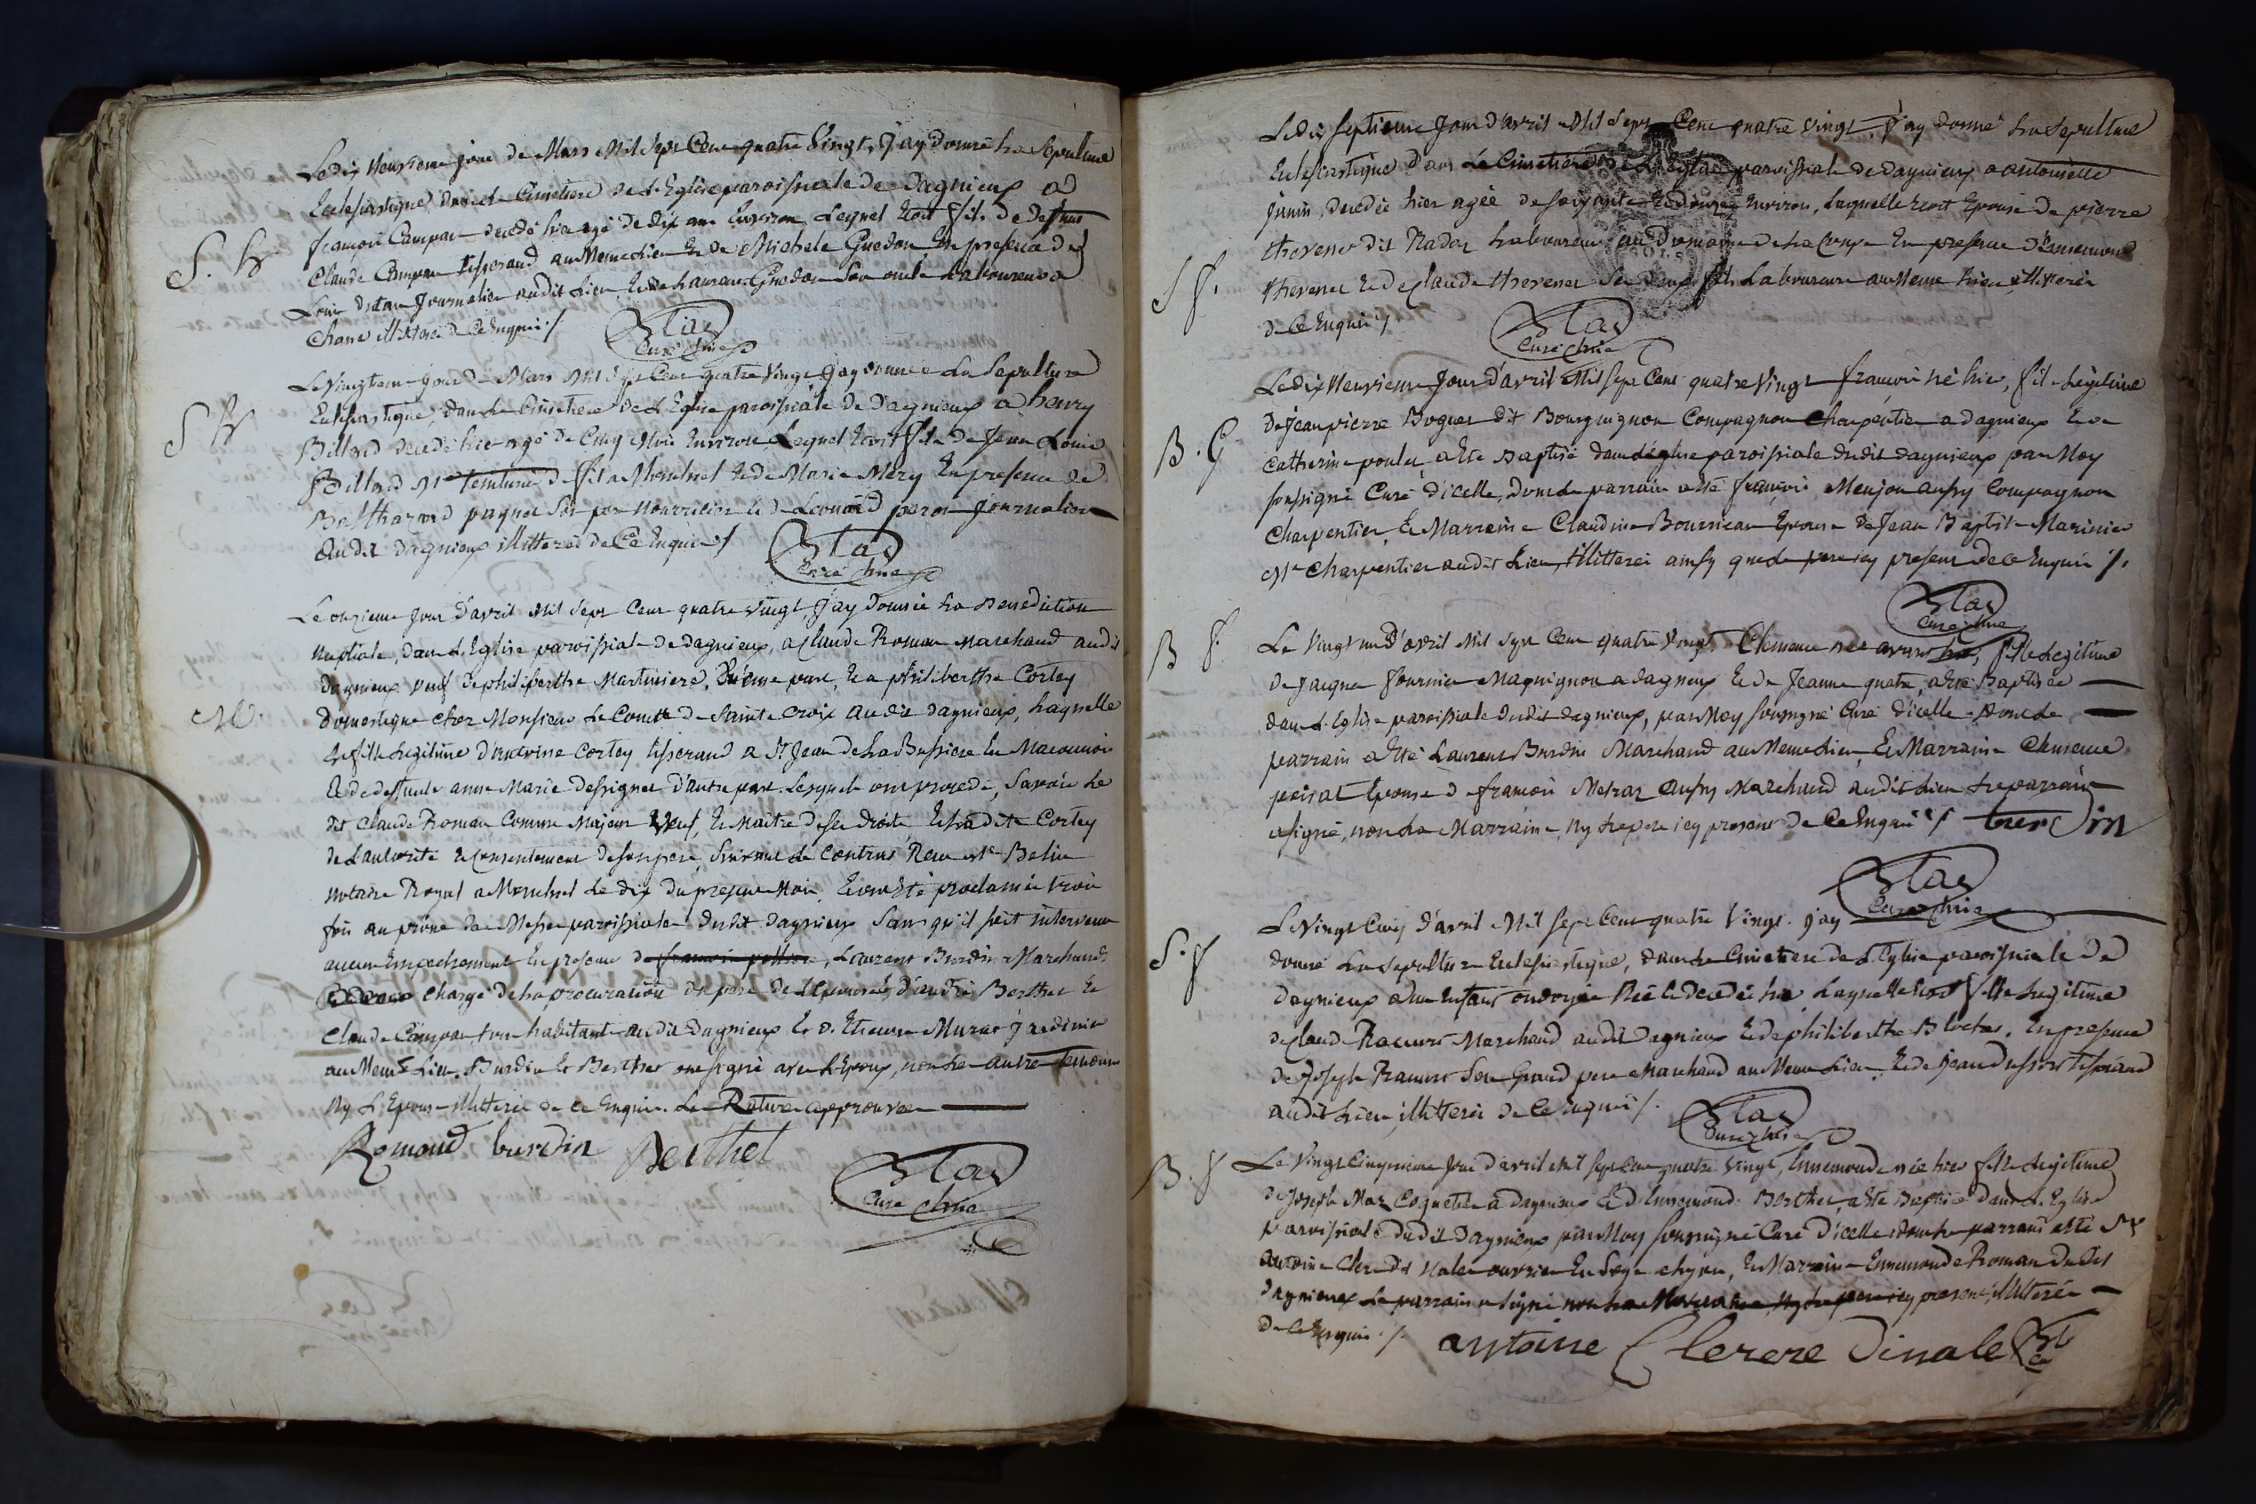 Le dix neuvieme jour de Mars Mil Sept Cent quatre Vingt, J'ay donné La Sepulture
Eclesiastique dans le Cimetiere de L'Eglise paroissiale de Dagnieux a
S. h françois Campan decedé hier agé de dix ans Environ Lequel Etoit fils de Deffunt
Claude Campan tisserand au Meme Lieu Et de Michele Guedon, En presence de
Louis Journalier audit Lieu Et de Laurent Guedon Son oncle Laboureur a
illiterés de Ce Enquis ./.
Blas
Curé
Le Vingtieme jour de Mars Mil Sept Cent quatre Vingt j'ay donnée La Sepulture
S h Eclesiastique, dans Le Cimetiere de L'Eglise paroissiale de Dagnieux a henry
Billard decedé hier agé de Cinq Mois Environ Lequel Etoit fils de Jean Louis
Billard Me a Montluel Et de Marie Mery En presence de
Balthazard paquet Son pere Nourricier Et de Leonard Journalier
audit dagnieux illitterés de Ce Enquis ./.
Blas
Curé
Le onzieme Jour D'avril Mil Sept Cent quatre Vingt J'ay Donnée La Benediction
Nuptiale, dans L'Eglise paroissiale de dagnieux, a Claude Roman Marchand audit
Dagnieux veuf de philiberthe Martiniere, D'une part, Et a philiberthe Cortey
M. Domestique chez Monsieur Le Comte de Sainte Croix audit dagnieux, Laquelle
Est fille Legitime d'antoine Cortey tisserand a St Jean de La Bussiere En Maconnois
Et de deffunte anne Marie d'autre part. Lesquels ont procedé, Savoir Le
dit Claude Roman Comme Majeur Veuf, Et Maitre de Ses droits, Et La dite Cortey
de L'autorité Et Consentement de Son pere, Suivant Le Contrat Recu Me Belin
notaire Royal a Montluel Le dix du present Mois, Et ont Eté proclamés trois
fois au prône de Messe paroissiale dudit dagnieux Sans qu'il soit intervenu
aucun Empechement En presence de Laurent Burdin Marchand
chargé de La procuration du pere de L'Epousée, d'andré Berthet Et
Claude Campan tous habitants audit dagnieux Et D'Etienne Murat Jardinier
au Meme Lieu. Burdin Et Berthet ont signé avec L'Epoux, non Les autres temoins
Ny L'Epouse illitterés de Ce Enquis. La Rature approuvée
Romand burdin Berthet
Blas
Curé
Le dix Septieme Jour D'avril Mil Sept Cent quatre Vingt, J'ay donné La Sepulture
Eclesiastique dans Le Cimetiere de L'Eglise paroissiale de Dagnieux a antoinette
Junin, decedée hier agée de soixante Et douze Environ, Laquelle Etoit Epouse de pierre
thevenet dit Nadaz Laboureur au Domaine de La En presence D'Ennemond
S f. thevenet Et de Claude thevenet Ses deux fils Laboureurs au Meme Lieu illiterés
de Ce Enquis ./.
Blas
Curé
Le dix Neuvieme Jour d'avril Mil Sept Cent quatre Vingt françois né hier, fils Legitime
De Jean pierre Boguet dit Bourguignon Compagnon Charpentier a dagnieux Et de
B. G Catherine poulet, a Eté Baptisé dans L'église paroissiale dudit dagnieux par Moy
soussigné Curé d'icelle, dont Le parrain a Eté françois Compagnon
Charpentier, Et Marraine Claudine Epouse de Jean Baptiste Marinier
Me Charpentier audit Lieu, illitterés ainsy que Le pere icy present de Ce Enquis ./.
Blas
Curé
B f. Le Vingt un d'avril Mil Sept Cent quatre Vingt Clemence née avant hier, fille Legitime
de Jacques fournier Maquignon a dagnieux Et de Jeanne quatre, a Eté Baptisée
dans L'Eglise paroissiale dudit dagnieux, par Moy soussigné Curé d'icelle dont Le
parrain a Eté Laurent Burdin Marchand au Meme Lieu, Et Marraine Clemence
Epouse de françois Marchand audit Lieu Le parrain
a signé, non La Marraine, Ny Le pere icy present de Ce Enquis ./. burdin
Blas
Curé
Le Vingt Cinq d'avril Mil Sept Cent quatre Vingt. J'ay
S. f donné La Sepulture Eclesiastique, dans Le Cimetiere de L'Eglise paroissiale de
Dagnieux a une Enfant ondoyée Née Et decedée hier Laquelle Etoit fille Legitime
de Claude Marchand audit Dagnieux Et de philiberthe En presence
de Joseph Son Grand pere Marchand au Meme Lieu, Et de Jean tisserand
audit Lieu, illitterés de Ce Enquis ./.
Blas
Curé
B. f Le Vingt Cinquieme Jour d'avril Mil Sept Cent quatre Vingt, Ennemonde née hier fille Legitime
de Joseph Coquetier a Dagnieux Et D'Ennemonde Berthet, a Eté Baptisée dans L'Eglise
paroissiale dudit Dagnieux par Moy soussigné Curé d'icelle dont Le parrain a Eté Sr
antoine Clerc dit Nale ouvrier En Soye a Lyon, Et Marraine Ennemonde Roman dudit
Dagnieux Le parrain a signé non La Marraine, Ny Le pere icy present, illiterés
de Ce Enquis ./. antoine Clerere Dinale